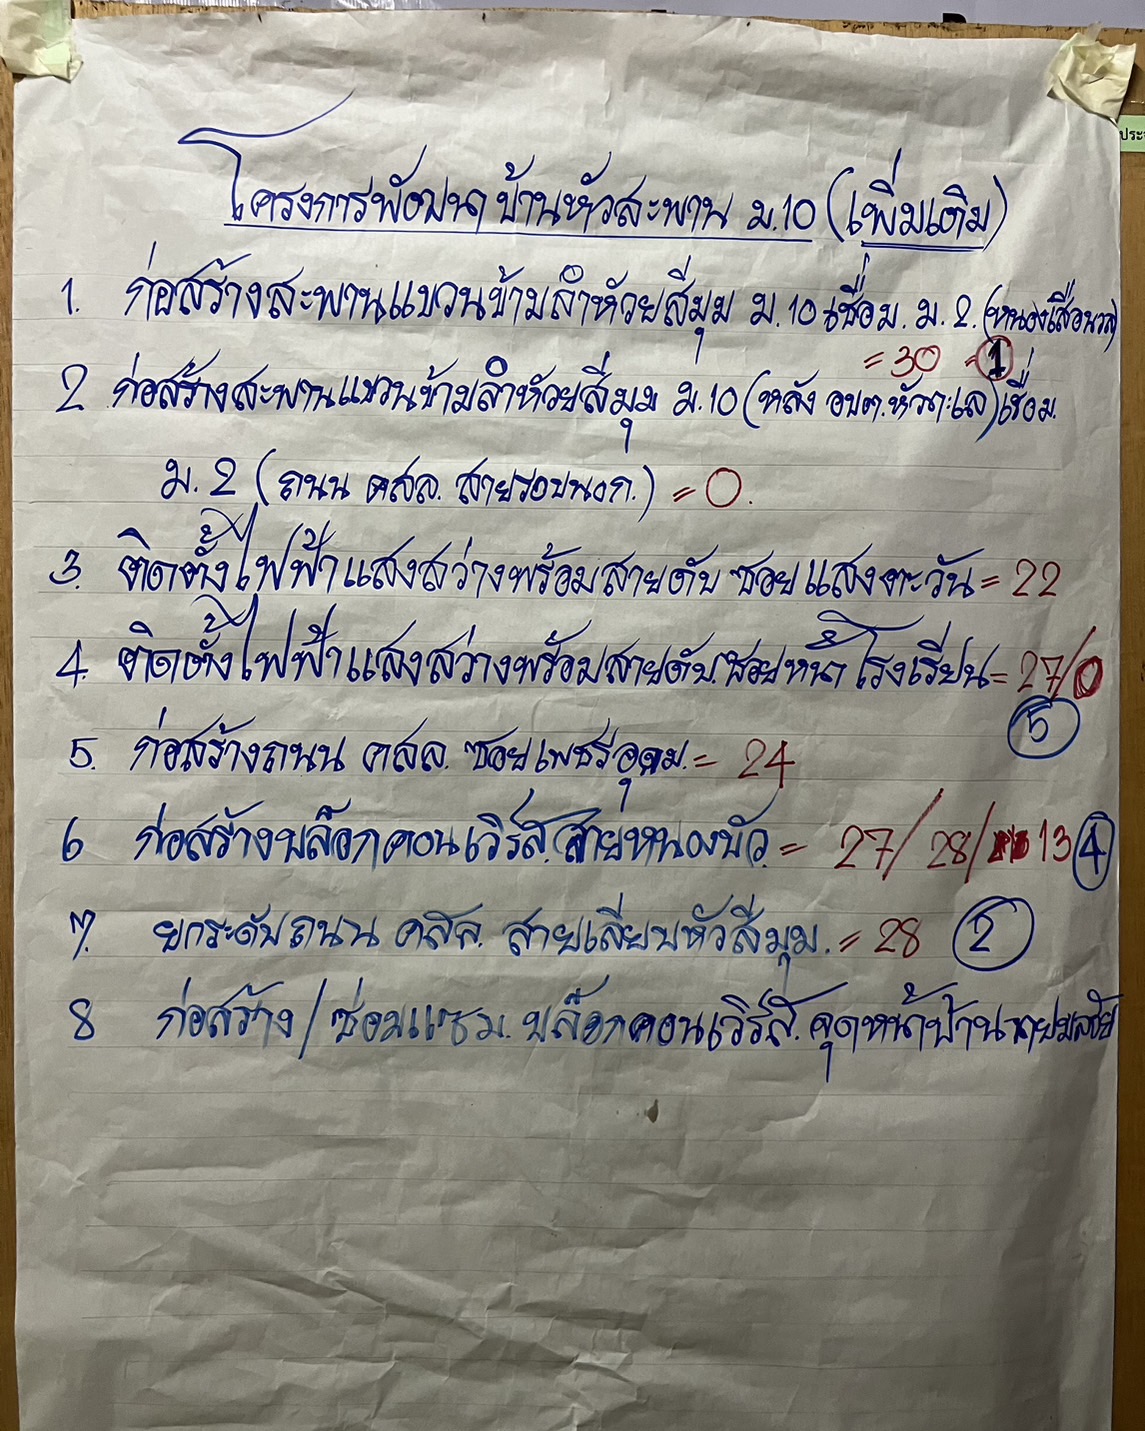 โครงการพัฒนาบ้านหัวสะพาน ม.10 (เพิ่มเติม)
ประ
1. ก่อสร้างสะพานแขวนข้ามลำห้วยสี่มุม ม.10 เชื่อม. ม.2. (หนองเสือนวล)
= 30 = 1
2 ก่อสร้างสะพานแขวนข้ามลำห้วยสี่มุม ม.10 (หลัง อบต.หัวทะเล) เชื่อม.
ม.2 (ถนน คสล. สายรอบนอก.) = 0.
3. ติดตั้งไฟฟ้าแสงสว่างพร้อมสายดับ ซอยแสงตะวัน = 22
4. ติดตั้งไฟฟ้าแสงสว่างพร้อมสายดับ. ซอยหน้าโรงเรียน = 27/0
5
5. ก่อสร้างถนน คสล. ซอยเพชรอุดม. = 24
6 ก่อสร้างบล๊อกคอนเวิร์ส. สายหนองบัว. = 27/28/ 13 4
7. ยกระดับถนน คสล. สายเลียบหัวสี่มุม. = 28 2
8 ก่อสร้าง/ซ่อมแซม. บล๊อกคอนเวิร์ส. จุดหน้าบ้าน